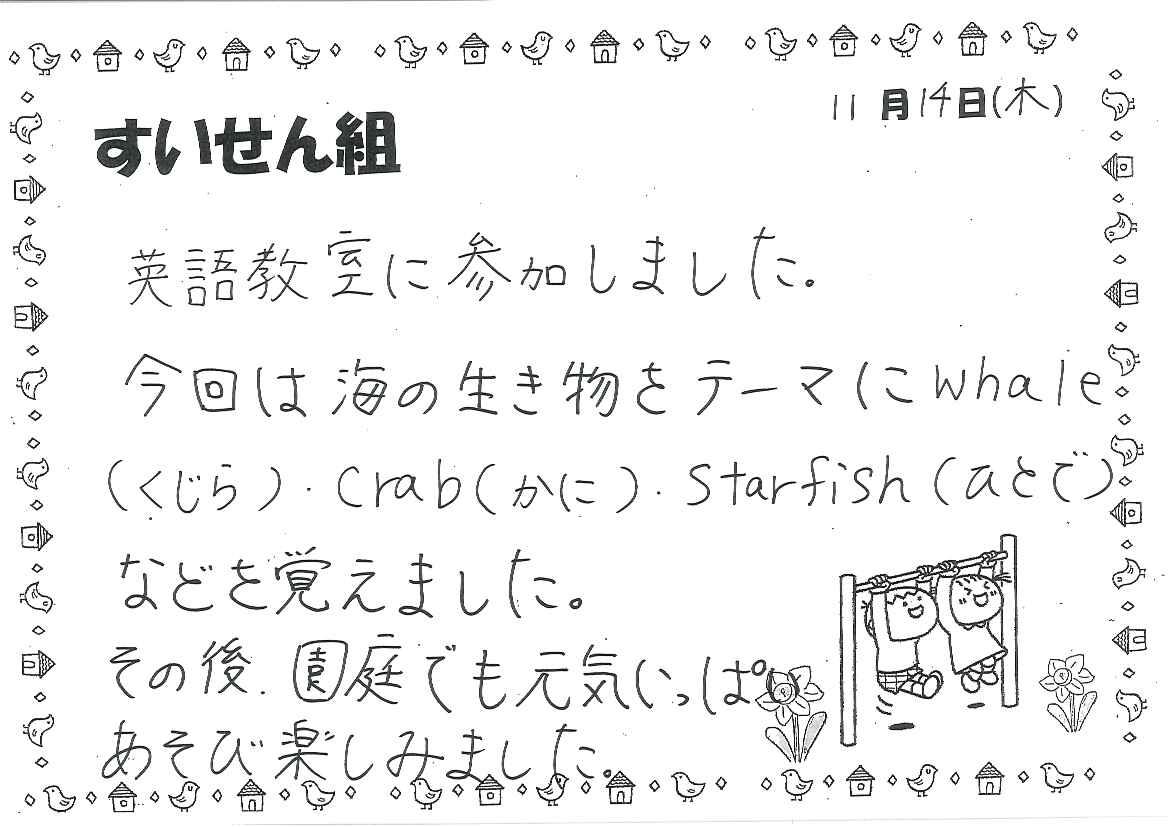 11月14日(木)
すいせん組
英語教室に参加しました。
今回は海の生き物をテーマに whale
(くじら)・crab(かに)・starfish(ひとで)
などを覚えました。
その後、園庭でも元気いっぱい
あそび楽しみました。